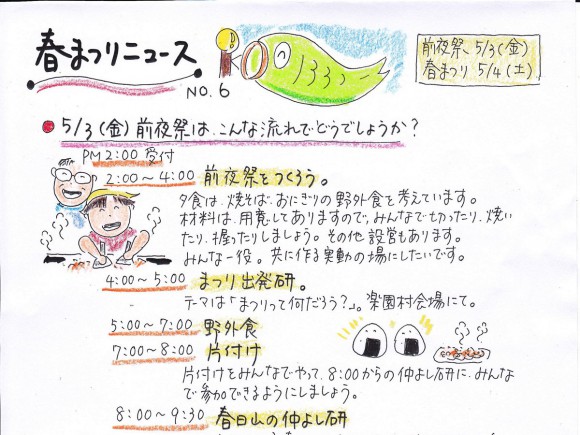 春まつりニュース
NO.6
前夜祭、5/3(金)
春まつり 5/4(土)
5/3(金)前夜祭は、こんな流れでどうでしょうか?
PM2:00 受付
2:00～4:00 前夜祭をつくろう。
夕食は、焼そば、おにぎりの野外食を考えています。
材料は、用意してありますので、みんなで切ったり、焼い
たり、握ったりしましょう。その他 設営もあります。
みんな一役。共に作る実動の場にしたいです。
4:00～5:00 まつり出発研。
テーマは「まつりって何だろう?」。楽園村会場にて。
5:00～7:00 野外食
7:00～8:00 片付け
片付けをみんなでやって、8:00からの仲よし研に、みんな
で参加できるようにしましょう。
8:00～9:30 春日山の仲よし研